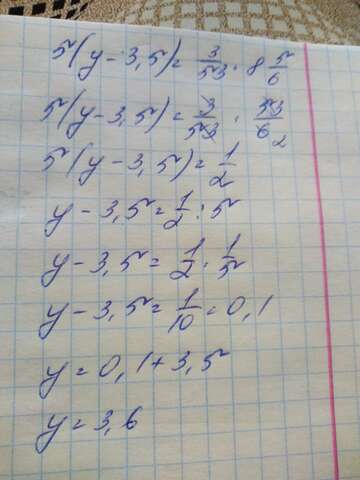 5(y - 3,5) = 3/53 · 8 5/6
5(y - 3,5) = 3/53 · 53/6 2
5(y - 3,5) = 1/2
y - 3,5 = 1/2 : 5
y - 3,5 = 1/2 · 1/5
y - 3,5 = 1/10 = 0,1
y = 0,1 + 3,5
y = 3,6